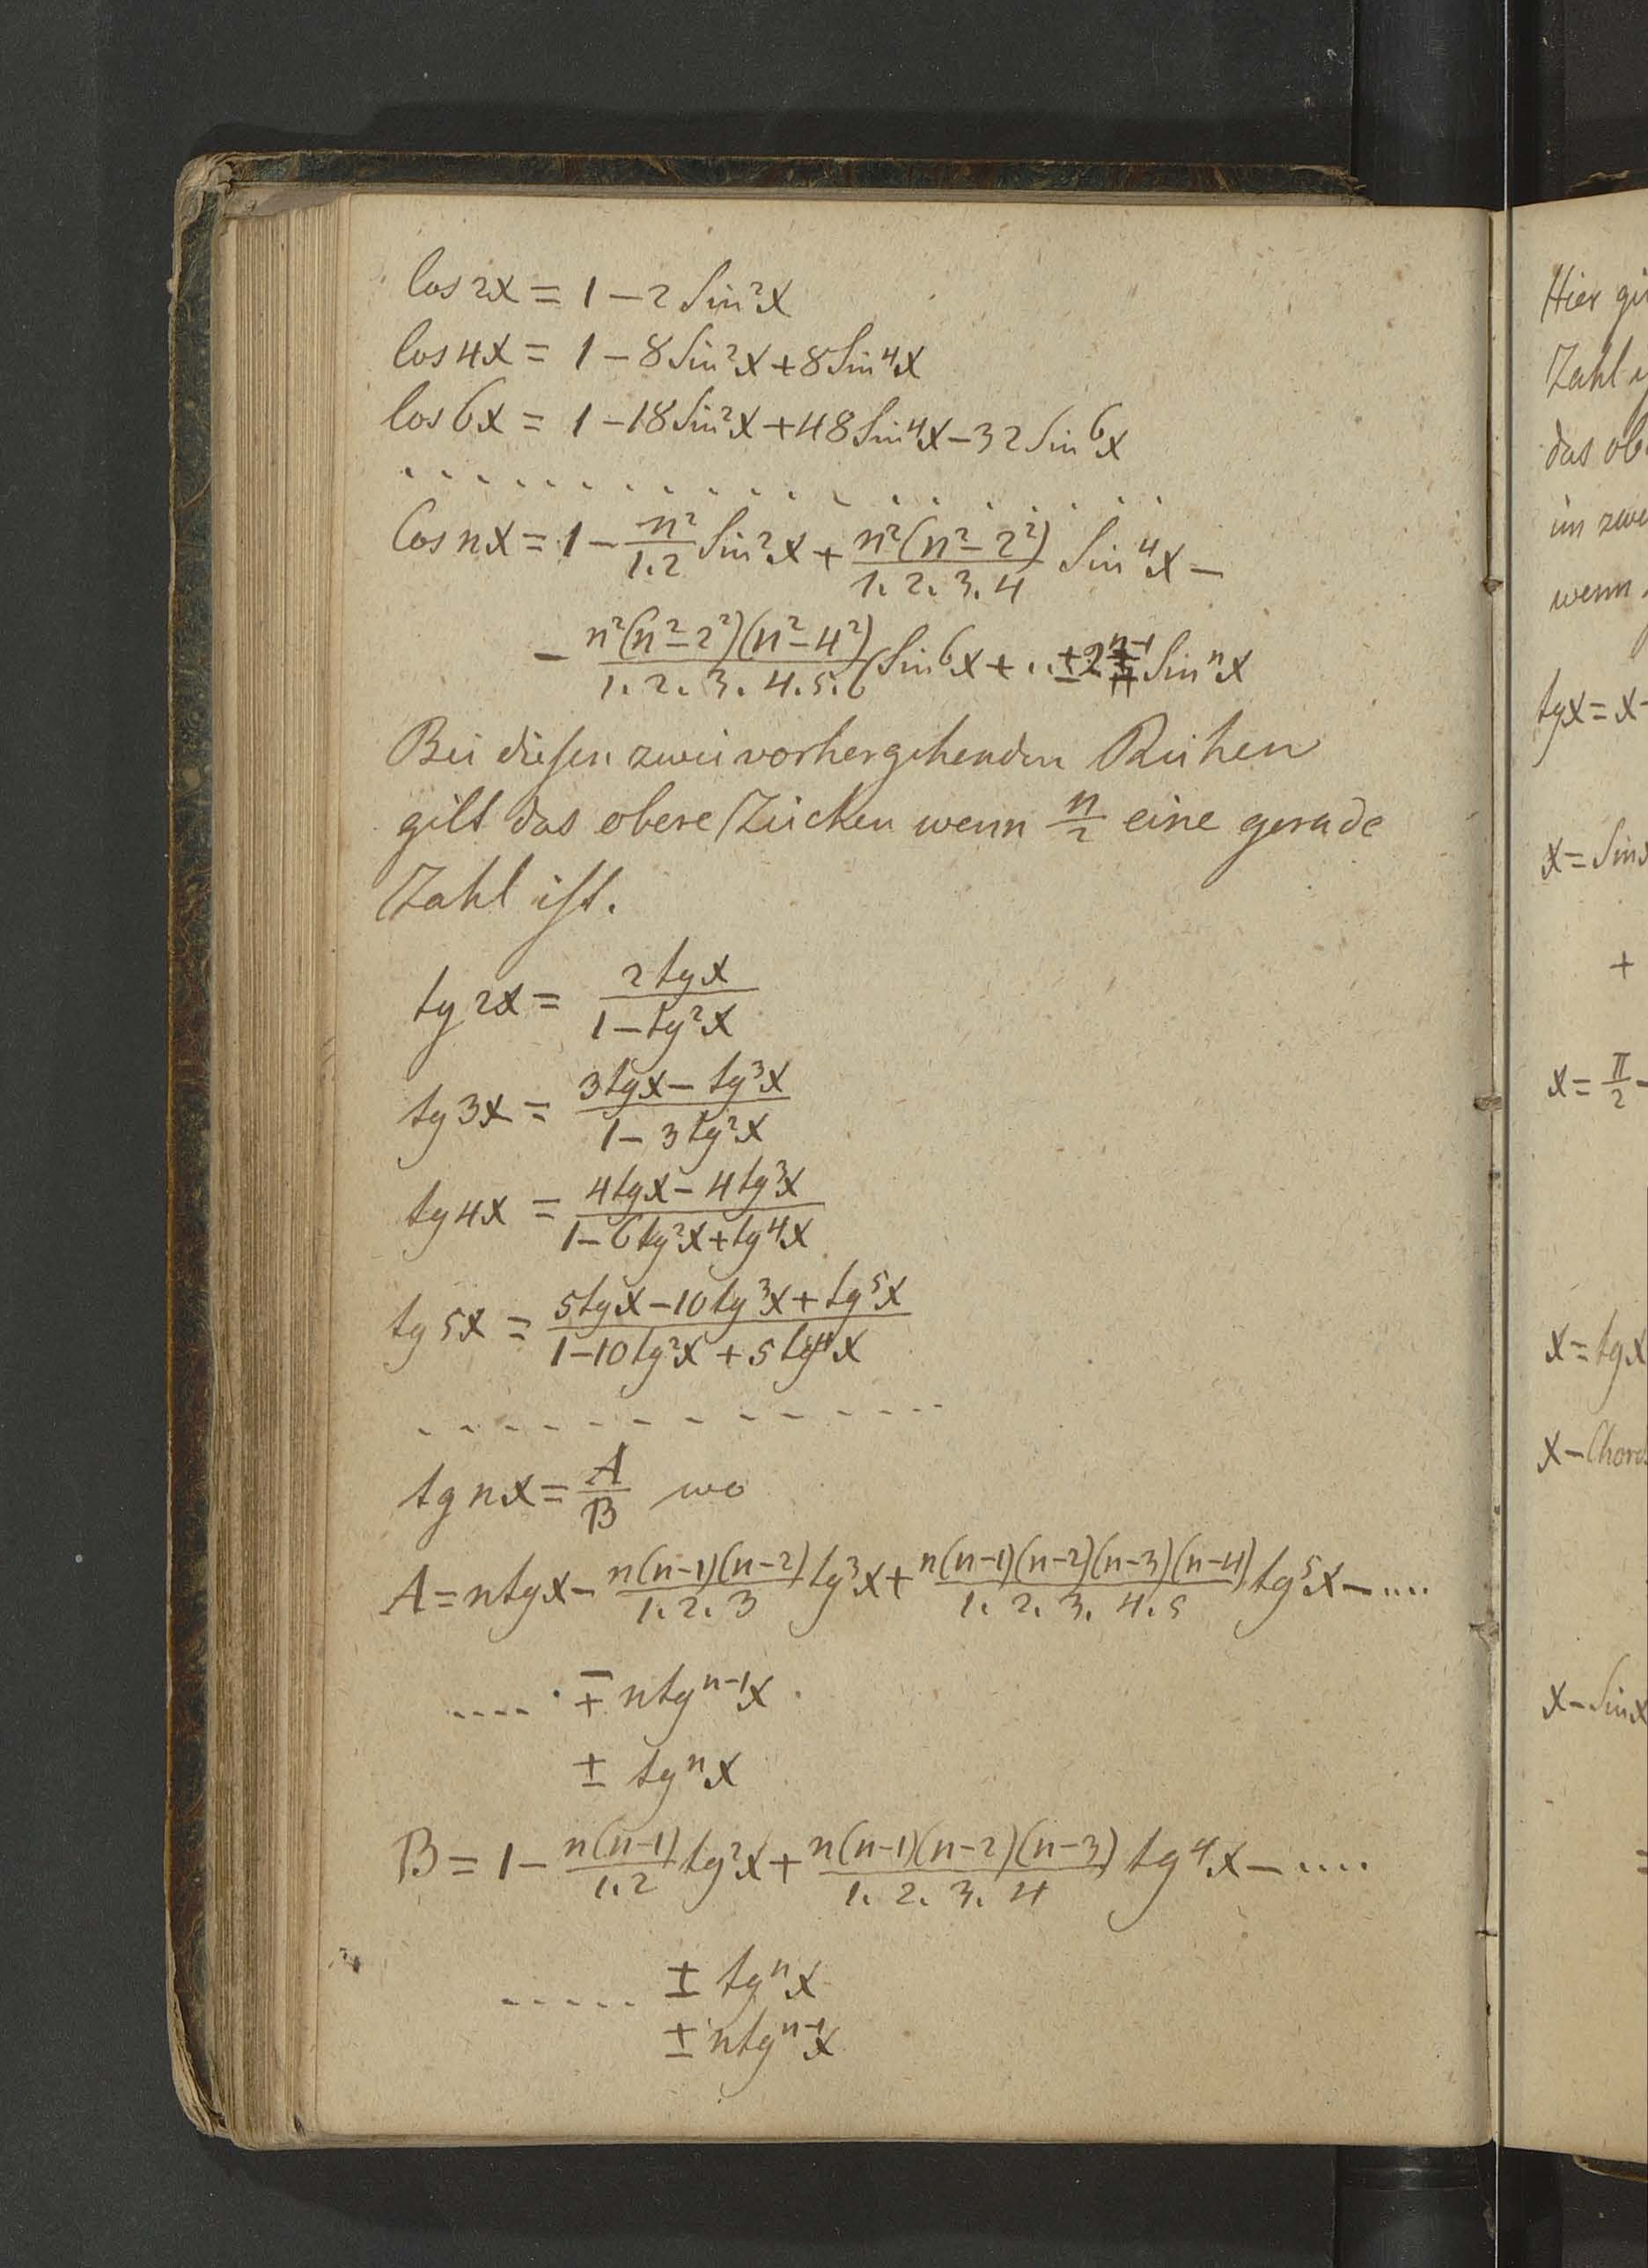 Cos 2x = 1 – 2 Sin²x
Cos 4x = 1 – 8 Sin²x + 8 Sin⁴x
Cos 6x = 1 – 18 Sin²x + 48 Sin⁴x – 32 Sin⁶x
. . . . . . . . . . . . . . . . . . . .
Cos nx = 1 – n²/1.2 Sin²x + n²(n² – 2²)/1. 2. 3. 4 Sin⁴x –
– n²(n² – 2²)(n² – 4²)/1. 2. 3. 4. 5. 6 Sin⁶x + .. ± 2ⁿ⁻¹ Sinⁿx
Bei diesen zwei vorhergehenden Reihen
gilt das obere Zeichen wenn n/2 eine gerade
Zahl ist.
tg 2x = 2 tg x/1 – tg²x
tg 3x = 3 tg x – tg³x/1 – 3 tg²x
tg 4x = 4 tg x – 4 tg³x/1 – 6 tg²x + tg⁴x
tg 5x = 5 tg x – 10 tg³x + tg⁵x/1 – 10 tg²x + 5 tg⁴x
- - - - - - - - - - - - - -
tg nx = A/B wo
A = n tg x – n(n–1)(n–2)/1. 2. 3 tg³x + n(n–1)(n–2)(n–3)(n–4)/1. 2. 3. 4. 5 tg⁵x – ....
.... ∓ n tgⁿ⁻¹x
± tgⁿx
B = 1 – n(n–1)/1.2 tg²x + n(n–1)(n–2)(n–3)/1. 2. 3. 4 tg⁴x – ....
..... ± tgⁿx
± n tgⁿ⁻¹x
Hier
Zahl
das
im
wenn
tgx = x
x = Sin
+
x = π/2 –
x = tgx
x –
x – Sinx
=